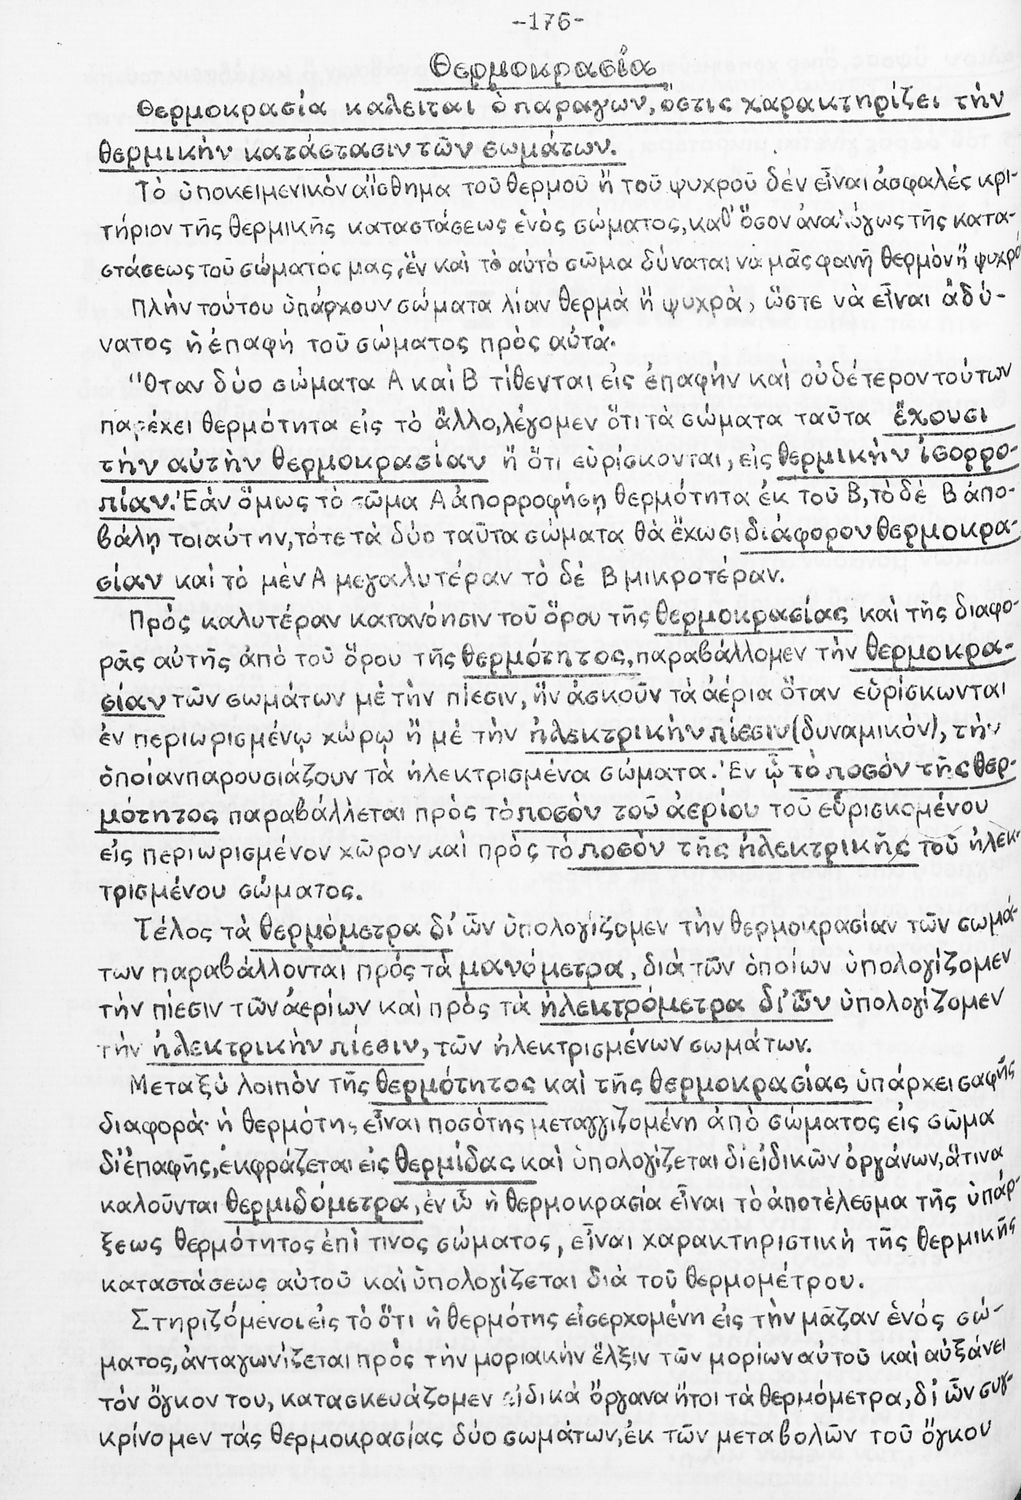 -176-
Θερμοκρασία
Θερμοκρασία καλεῖται ὁ παράγων, ὅστις χαρακτηρίζει τὴν
θερμικὴν κατάστασιν τῶν σωμάτων.
Τὸ ὑποκειμενικὸν αἴσθημα τοῦ θερμοῦ ἢ τοῦ ψυχροῦ δὲν εἶναι ἀσφαλὲς κρι-
τήριον τῆς θερμικῆς καταστάσεως ἑνὸς σώματος, καθ' ὅσον ἀναλόγως τῆς κατα-
στάσεως τοῦ σώματός μας, ἓν καὶ τὸ αὐτὸ σῶμα δύναται νὰ μᾶς φανῇ θερμὸν ἢ ψυχρό
Πλὴν τούτου ὑπάρχουν σώματα λίαν θερμὰ ἢ ψυχρὰ, ὥστε νὰ εἶναι ἀδύ-
νατος ἡ ἐπαφὴ τοῦ σώματος πρὸς αὐτά.
"Όταν δύο σώματα Α καὶ Β τίθενται εἰς ἐπαφὴν καὶ οὐδέτερον τούτων
παρέχει θερμότητα εἰς τὸ ἄλλο, λέγομεν ὅτι τὰ σώματα ταῦτα ἔχουσι
τὴν αὐτὴν θερμοκρασίαν ἢ ὅτι εὑρίσκονται, εἰς θερμικὴν ἰσορρο-
πίαν. Ἐὰν ὅμως τὸ σῶμα Α ἀπορροφήσῃ θερμότητα ἐκ τοῦ Β, τὸ δὲ Β ἀπο-
βάλῃ τοιαύτην, τότε τὰ δύο ταῦτα σώματα θὰ ἔχωσι διάφορον θερμοκρα-
σίαν καὶ τὸ μὲν Α μεγαλυτέραν τὸ δὲ Β μικροτέραν.
Πρὸς καλυτέραν κατανόησιν τοῦ ὅρου τῆς θερμοκρασίας καὶ τῆς διαφο-
ρᾶς αὐτῆς ἀπὸ τοῦ ὅρου τῆς θερμότητος, παραβάλλομεν τὴν θερμοκρα-
σίαν τῶν σωμάτων μὲ τὴν πίεσιν, ἣν ἀσκοῦν τὰ ἀέρια ὅταν εὑρίσκωνται
ἐν περιωρισμένῳ χώρῳ ἢ μὲ τὴν ἠλεκτρικὴν πίεσιν (δυναμικόν), τὴν
ὁποίαν παρουσιάζουν τὰ ἠλεκτρισμένα σώματα. Ἐν ᾧ τὸ ποσὸν τῆς θερ-
μότητος παραβάλλεται πρὸς τὸ ποσὸν τοῦ ἀερίου τοῦ εὑρισκομένου
εἰς περιωρισμένον χῶρον καὶ πρὸς τὸ ποσὸν τῆς ἠλεκτρικῆς τοῦ ἠλεκ-
τρισμένου σώματος.
Τέλος τὰ θερμόμετρα δι' ὧν ὑπολογίζομεν τὴν θερμοκρασίαν τῶν σωμά-
των παραβάλλονται πρὸς τὰ μανόμετρα, διὰ τῶν ὁποίων ὑπολογίζομεν
τὴν πίεσιν τῶν ἀερίων καὶ πρὸς τὰ ἠλεκτρόμετρα δι' ὧν ὑπολογίζομεν
τὴν ἠλεκτρικὴν πίεσιν, τῶν ἠλεκτρισμένων σωμάτων.
Μεταξὺ λοιπὸν τῆς θερμότητος καὶ τῆς θερμοκρασίας ὑπάρχει σαφὴς
διαφορὰ· ἡ θερμότης εἶναι ποσότης μεταγγιζομένη ἀπὸ σώματος εἰς σῶμα
δι' ἐπαφῆς, ἐκφράζεται εἰς θερμίδας καὶ ὑπολογίζεται δι' εἰδικῶν ὀργάνων, ἅτινα
καλοῦνται θερμιδόμετρα, ἐν ᾧ ἡ θερμοκρασία εἶναι τὸ ἀποτέλεσμα τῆς ὑπάρ-
ξεως θερμότητος ἐπί τινος σώματος, εἶναι χαρακτηριστικὴ τῆς θερμικῆς
καταστάσεως αὐτοῦ καὶ ὑπολογίζεται διὰ τοῦ θερμομέτρου.
Στηριζόμενοι εἰς τὸ ὅτι ἡ θερμότης εἰσερχομένη εἰς τὴν μᾶζαν ἑνὸς σώ-
ματος, ἀνταγωνίζεται πρὸς τὴν μοριακὴν ἕλξιν τῶν μορίων αὐτοῦ καὶ αὐξάνει
τὸν ὄγκον του, κατασκευάζομεν εἰδικὰ ὄργανα ἤτοι τὰ θερμόμετρα, δι' ὧν συγ-
κρίνομεν τὰς θερμοκρασίας δύο σωμάτων, ἐκ τῶν μεταβολῶν τοῦ ὄγκου